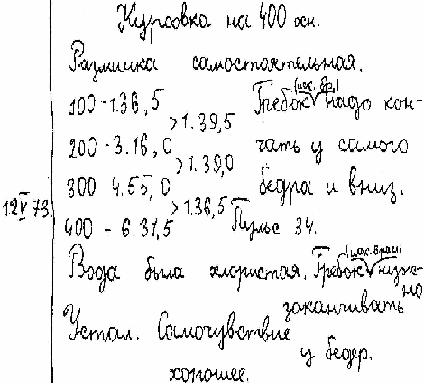 Курсовка на 400 осн.
Разминка самостоятельная.
100 - 1.36,5 Гребок (лос. бр.) надо кон-
> 1.39,5
200 - 3.16,0 чать у самого
> 1.39,0
300 4.55,0 бедра и вниз.
12 V 73 > 1.36,5
400 - 6 31,5 Пульс 34.
Вода была хлористая. Гребок нужно
заканчивать
Устал. Самочувствие
у бедр.
хорошее.